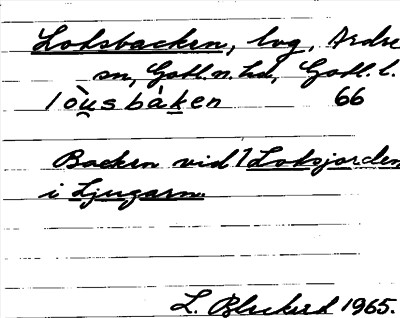 Lotsbacken, lvg, Ardre
sn, Gotl. n. hd, Gotl. l.
lòu̯sbàk̲en 66
Backen vid 1 Lotsjorden
i Ljugarn.
L. 1965.